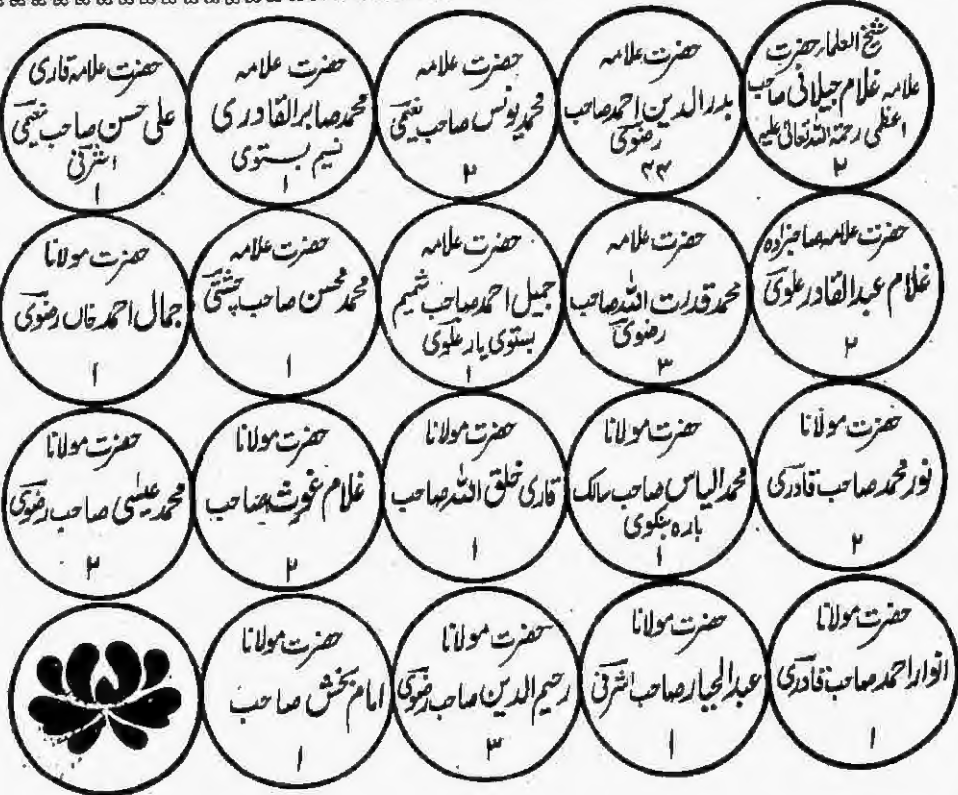 شیخ العلماء حضرت
علامہ غلام جیلانی صاحب
اعظمی رحمۃ اللہ تعالیٰ علیہ
۲
حضرت علامہ
بدرالدین احمد صاحب
رضوی
۲۴
حضرت علامہ
محمد یونس صاحب نعیمی
۲
حضرت علامہ
محمد صابر القادری
نسیم بستوی
۱
حضرت علامہ قاری
علی حسن صاحب نعیمی
اشرفی
۱
حضرت علامہ صاحبزادہ
غلام عبدالقادر علوی
۲
حضرت علامہ
محمد قدرت اللہ صاحب
رضوی
۳
حضرت علامہ
جمیل احمد صاحب شمیم
بستوی یار علوی
۱
حضرت علامہ
محمد محسن صاحب چشتی
۱
حضرت مولانا
جمال احمد خاں رضوی
۱
حضرت مولانا
نور محمد صاحب قادری
۲
حضرت مولانا
محمد الیاس صاحب سالک
بارہ بنکوی
۱
حضرت مولانا
قاری خلق اللہ صاحب
۱
حضرت مولانا
غلام غوث صاحب
۲
حضرت مولانا
محمد عیسیٰ صاحب رضوی
۲
حضرت مولانا
انوار احمد صاحب قادری
۱
حضرت مولانا
عبدالجبار صاحب اشرفی
۱
حضرت مولانا
رحیم الدین صاحب رضوی
۳
حضرت مولانا
امام بخش صاحب
۱